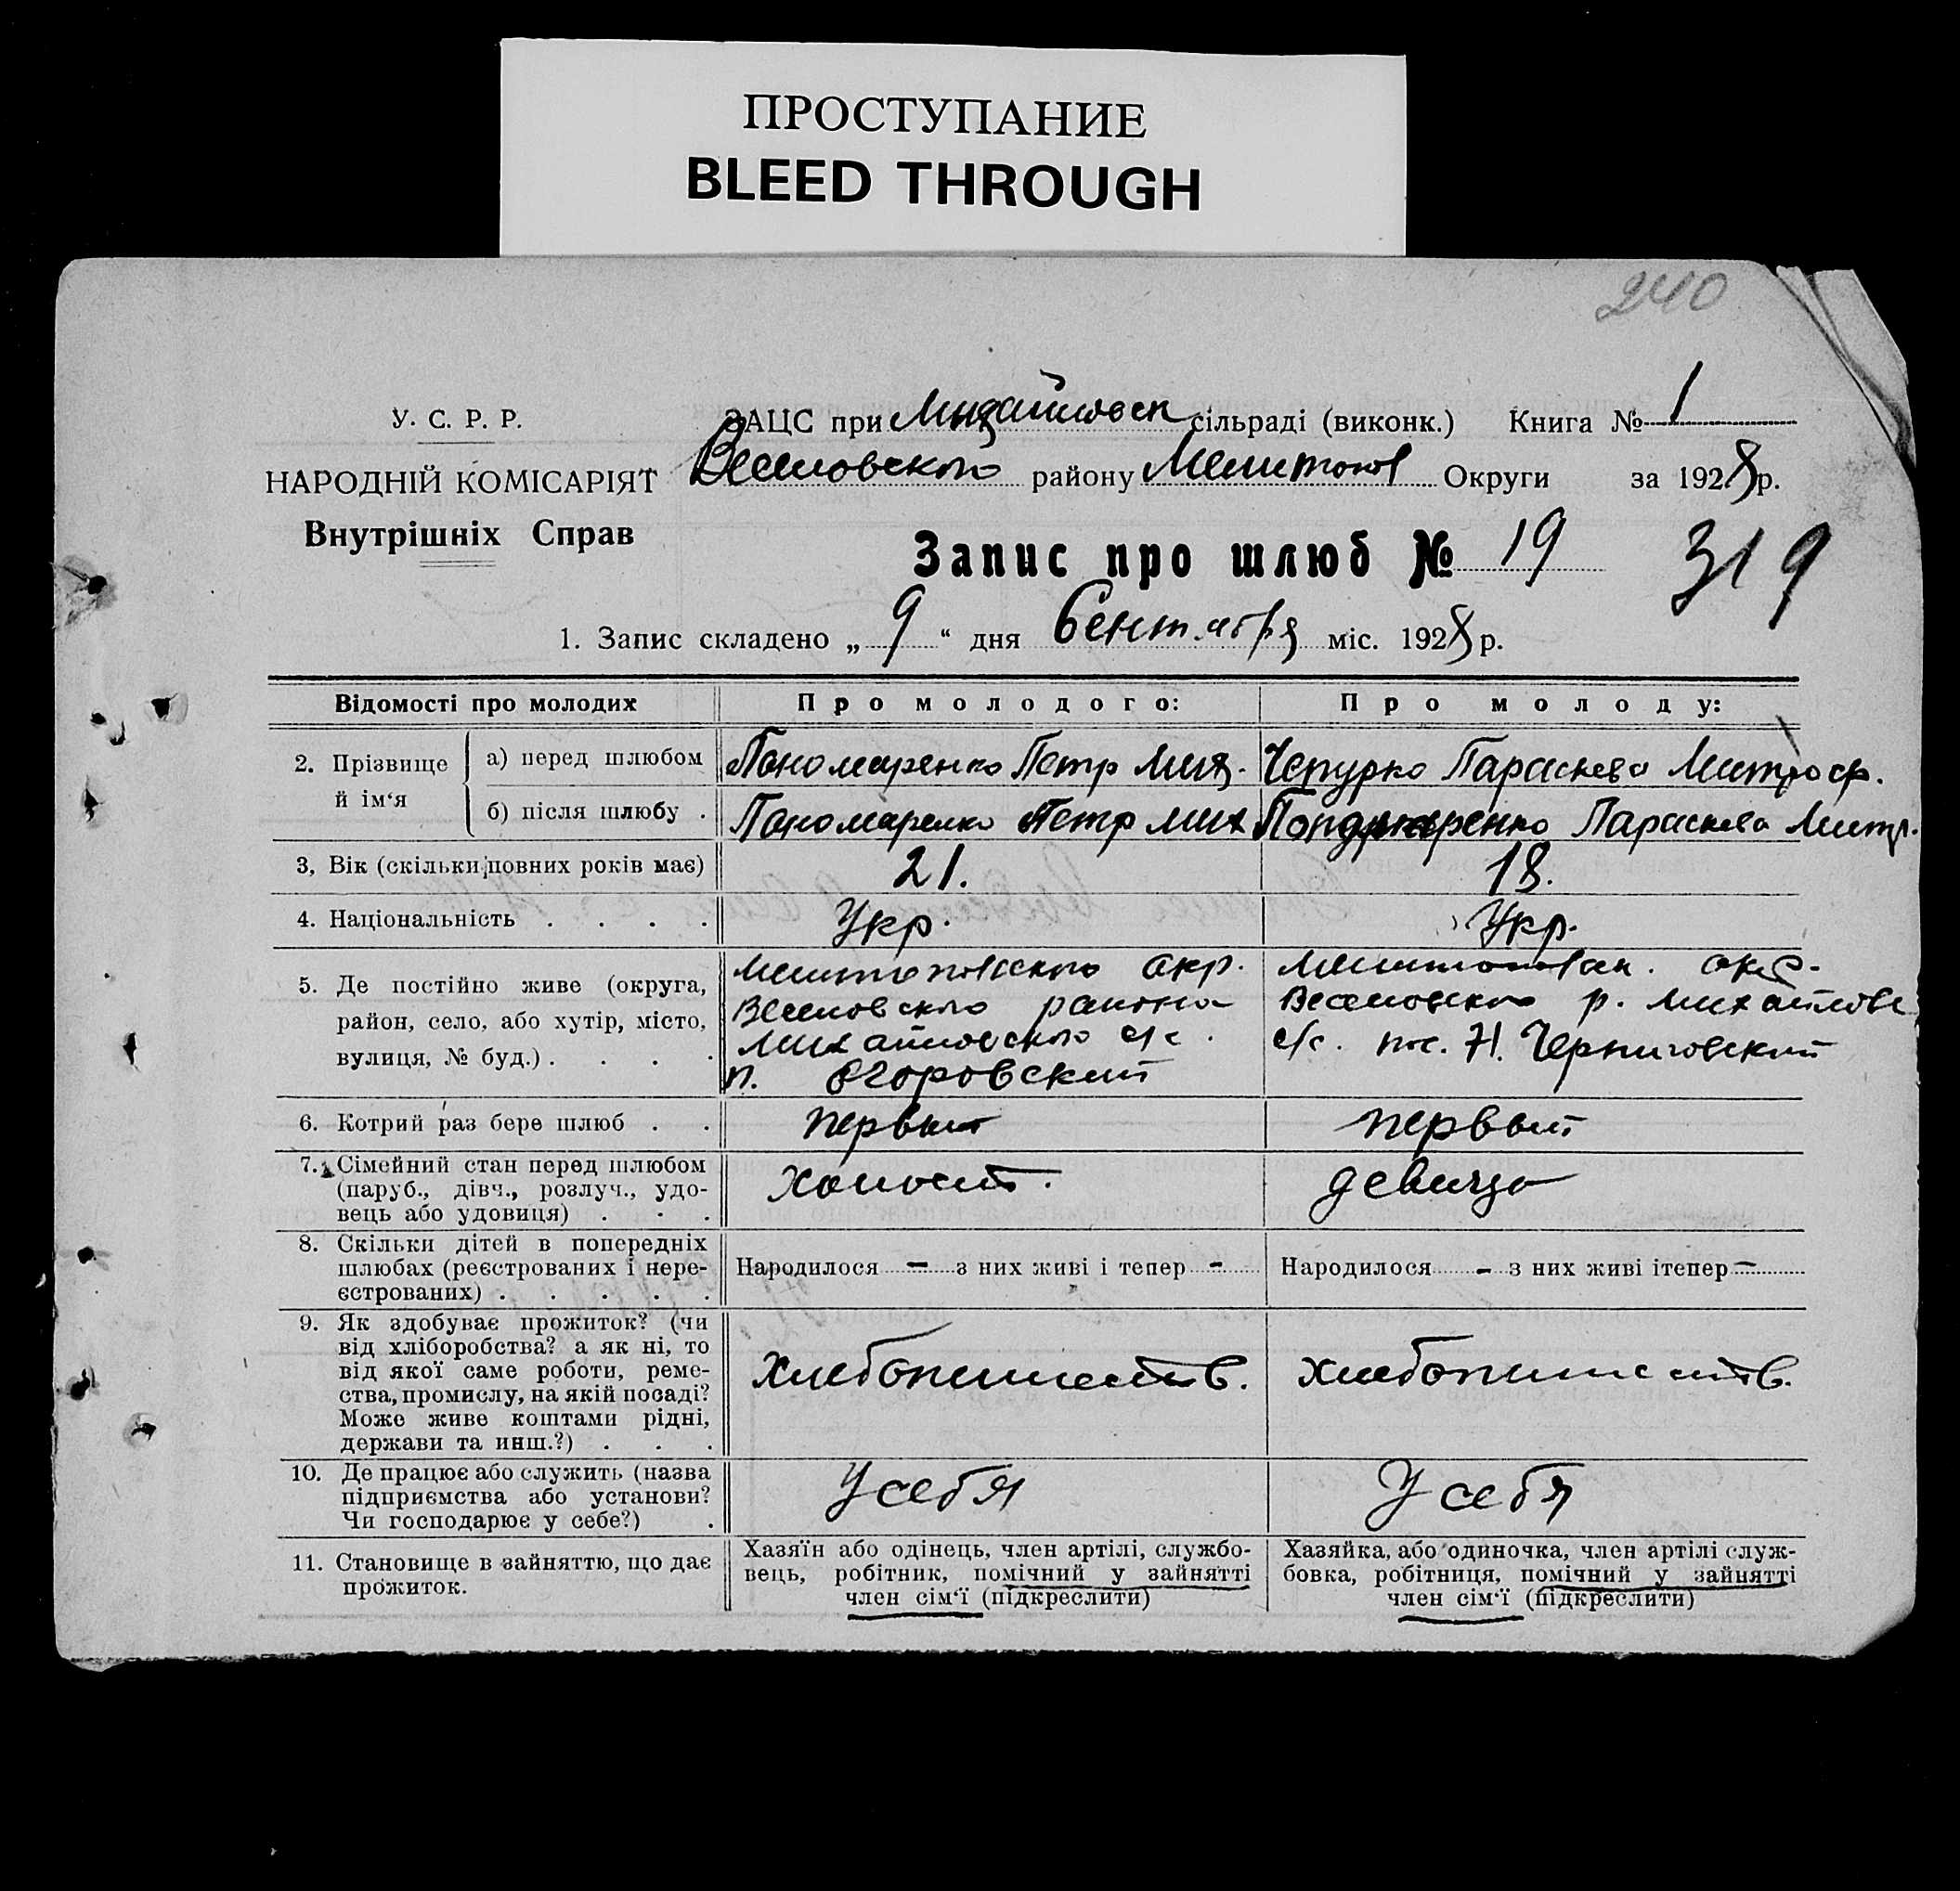 ПРОСТУПАНИЕ
BLEED THROUGH
240
У. С. Р. Р.
НАРОДНІЙ КОМІСАРІЯТ
Внутрішніх Справ
ЗАЦС при Михайловск сільраді (виконк.) Книга № 1
Веселовского району Мелитопол Округи за 1928 р.
Запис про шлюб № 19 319
1. Запис складено „ 9 “ дня Сентября міс. 1928 р.
Відомості про молодих
Про молодого:
Про молоду:
2. Прізвище й ім‘я
а) перед шлюбом
Пономаренко Петр Мих.
Чепурко Параскева Митроф.
б) після шлюбу .
Пономаренко Петр Мих
Пономаренко Параскева Митр.
3, Вік (скільки повних років має)
21.
18.
4. Національність . . . .
Укр.
Укр.
5. Де постійно живе (округа,
район, село, або хутір, місто,
вулиця, № буд.) . . . .
Мелитопольского окр.
Веселовского района
Михайловского с/с.
п.
Мелитопольск. окр.
Веселовского р. Михайловс
с/с. пос. Н. Черниговский
6. Котрий раз бере шлюб . .
первый
первый
7. Сімейний стан перед шлюбом
(паруб., дівч., розлуч., удо-
вець або удовиця) . . .
холост.
девица
8. Скільки дітей в попередніх
шлюбах (реєстрованих і нере-
єстрованих) . . . . .
Народилося – з них живі і тепер –
Народилося – з них живі ітепер –
9. Як здобуває прожиток? (чи
від хліборобства? а як ні, то
від якої саме роботи, реме-
ства, промислу, на якій посаді?
Може живе коштами рідні,
держави та инш.?) . . .
Хлебопашеств.
Хлебопашеств.
10. Де працює або служить (назва
підприємства або установи?
Чи господарює у себе?) .
У себя
У себя
11. Становище в зайняттю, що дає
прожиток.
Хазяїн або одінець, член артілі, службо-
вець, робітник, помічний у зайнятті
член сім‘ї (підкреслити)
Хазяйка, або одиночка, член артілі служ-
бовка, робітниця, помічний у зайнятті
член сім‘ї (підкреслити)